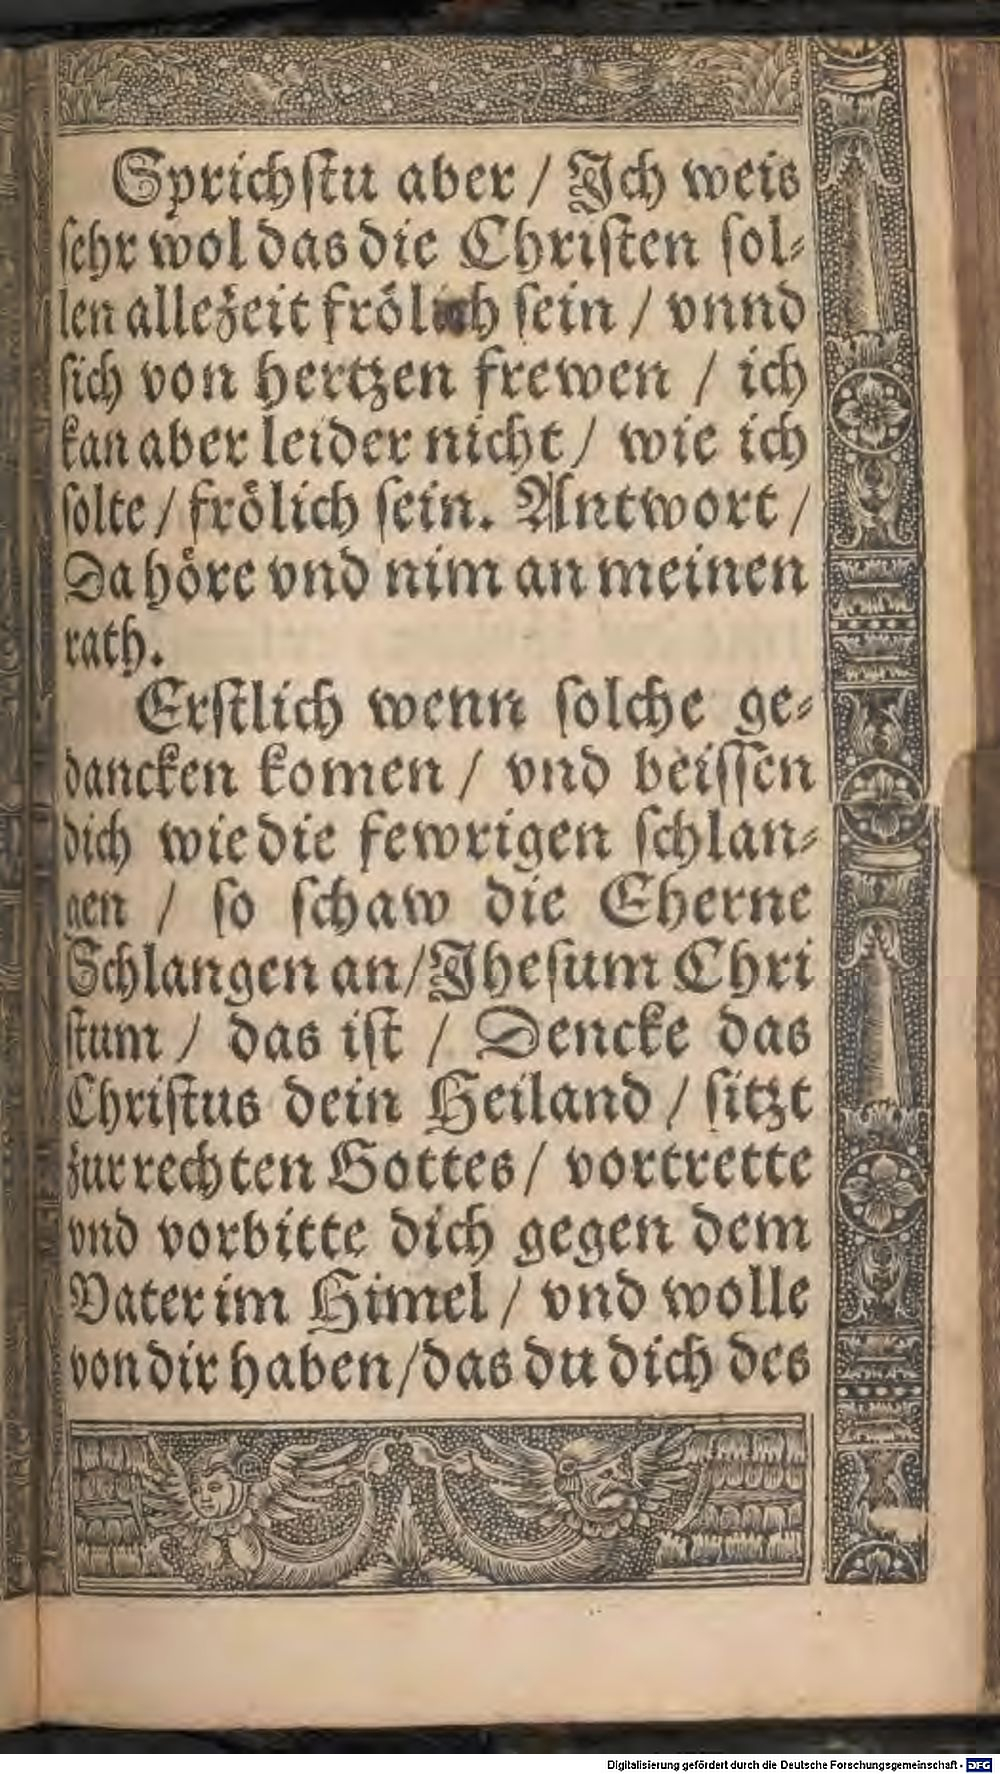 Sprichſtu aber / Ich weis
ſehr wol das die Chriſten ſol⸗
len allezeit frölich ſein / vnnd
ſich von hertzen frewen / ich
kan aber leider nicht / wie ich
ſolte / frölich ſein. Antwort /
Da höre vnd nim an meinen
rath.
Erſtlich wenn ſolche ge⸗
dancken komen / vnd beiſſen
dich wie die fewrigen ſchlan⸗
gen / ſo ſchaw die Eherne
Schlangen an / Iheſum Chri
ſtum / das iſt / Dencke das
Chriſtus dein Heiland / ſitzt
zur rechten Gottes / vortrette
vnd vorbitte dich gegen dem
Vater im Himel / vnd wolle
von dir haben / das du dich des
Digitalisierung gefördert durch die Deutsche Forschungsgemeinschaft - DFG